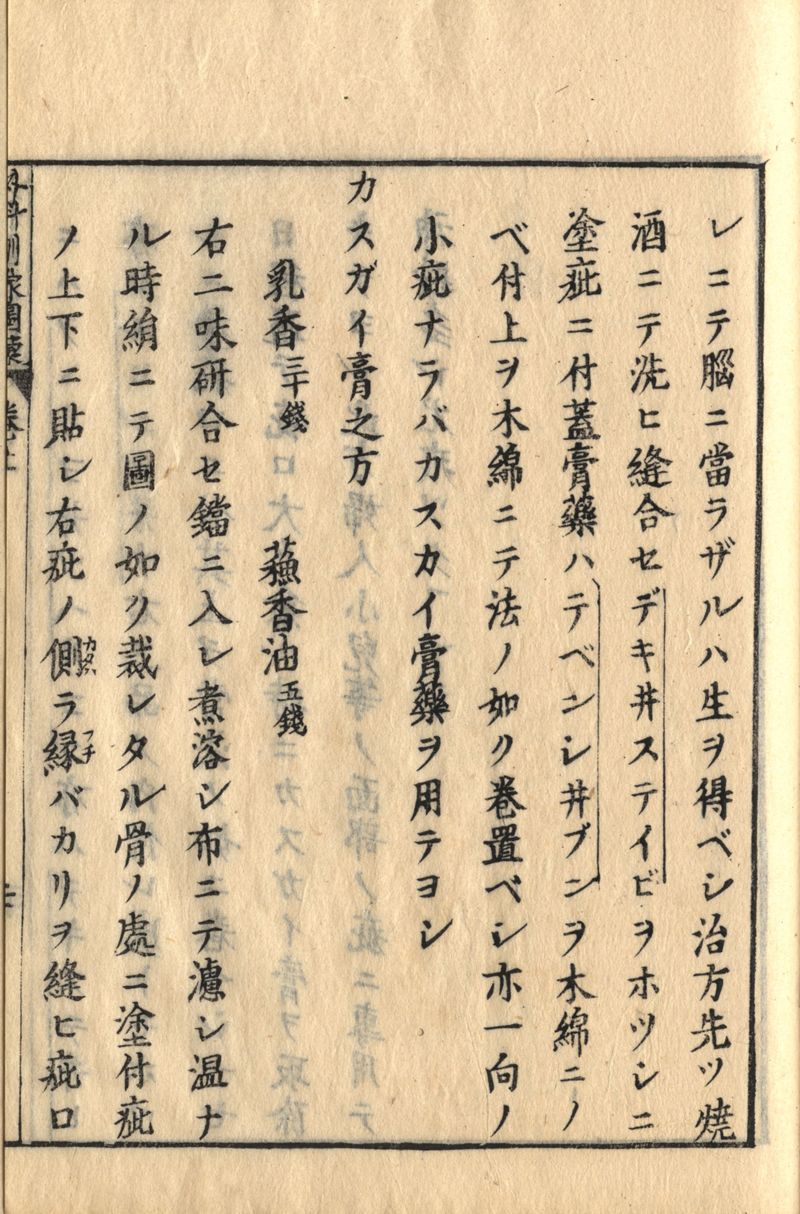 レニテ腦ニ當ラザルハ生ヲ得ベシ治方先ツ燒
酒ニテ洗ヒ縫合セデキ井ステイビヲホツシニ
塗疵ニ付蓋膏藥ハテベンシ井ブンヲ木綿ニノ
ベ付上ヲ木綿ニテ法ノ如ク卷置ベシ亦一向ノ
小疵ナラバカスカイ膏藥ヲ用テヨシ
カスガイ膏之方
乳香三十錢 蘓香油五錢
右二味研合セ鐺ニ入レ煮溶シ布ニテ濾シ温ナ
ル時絹ニテ圖ノ如ク裁レタル骨ノ處ニ塗付疵
ノ上下ニ貼シ右疵ノ側ラ縁バカリヲ縫ヒ疵口
カタハ
フチ
外科訓蒙圖彙 卷上